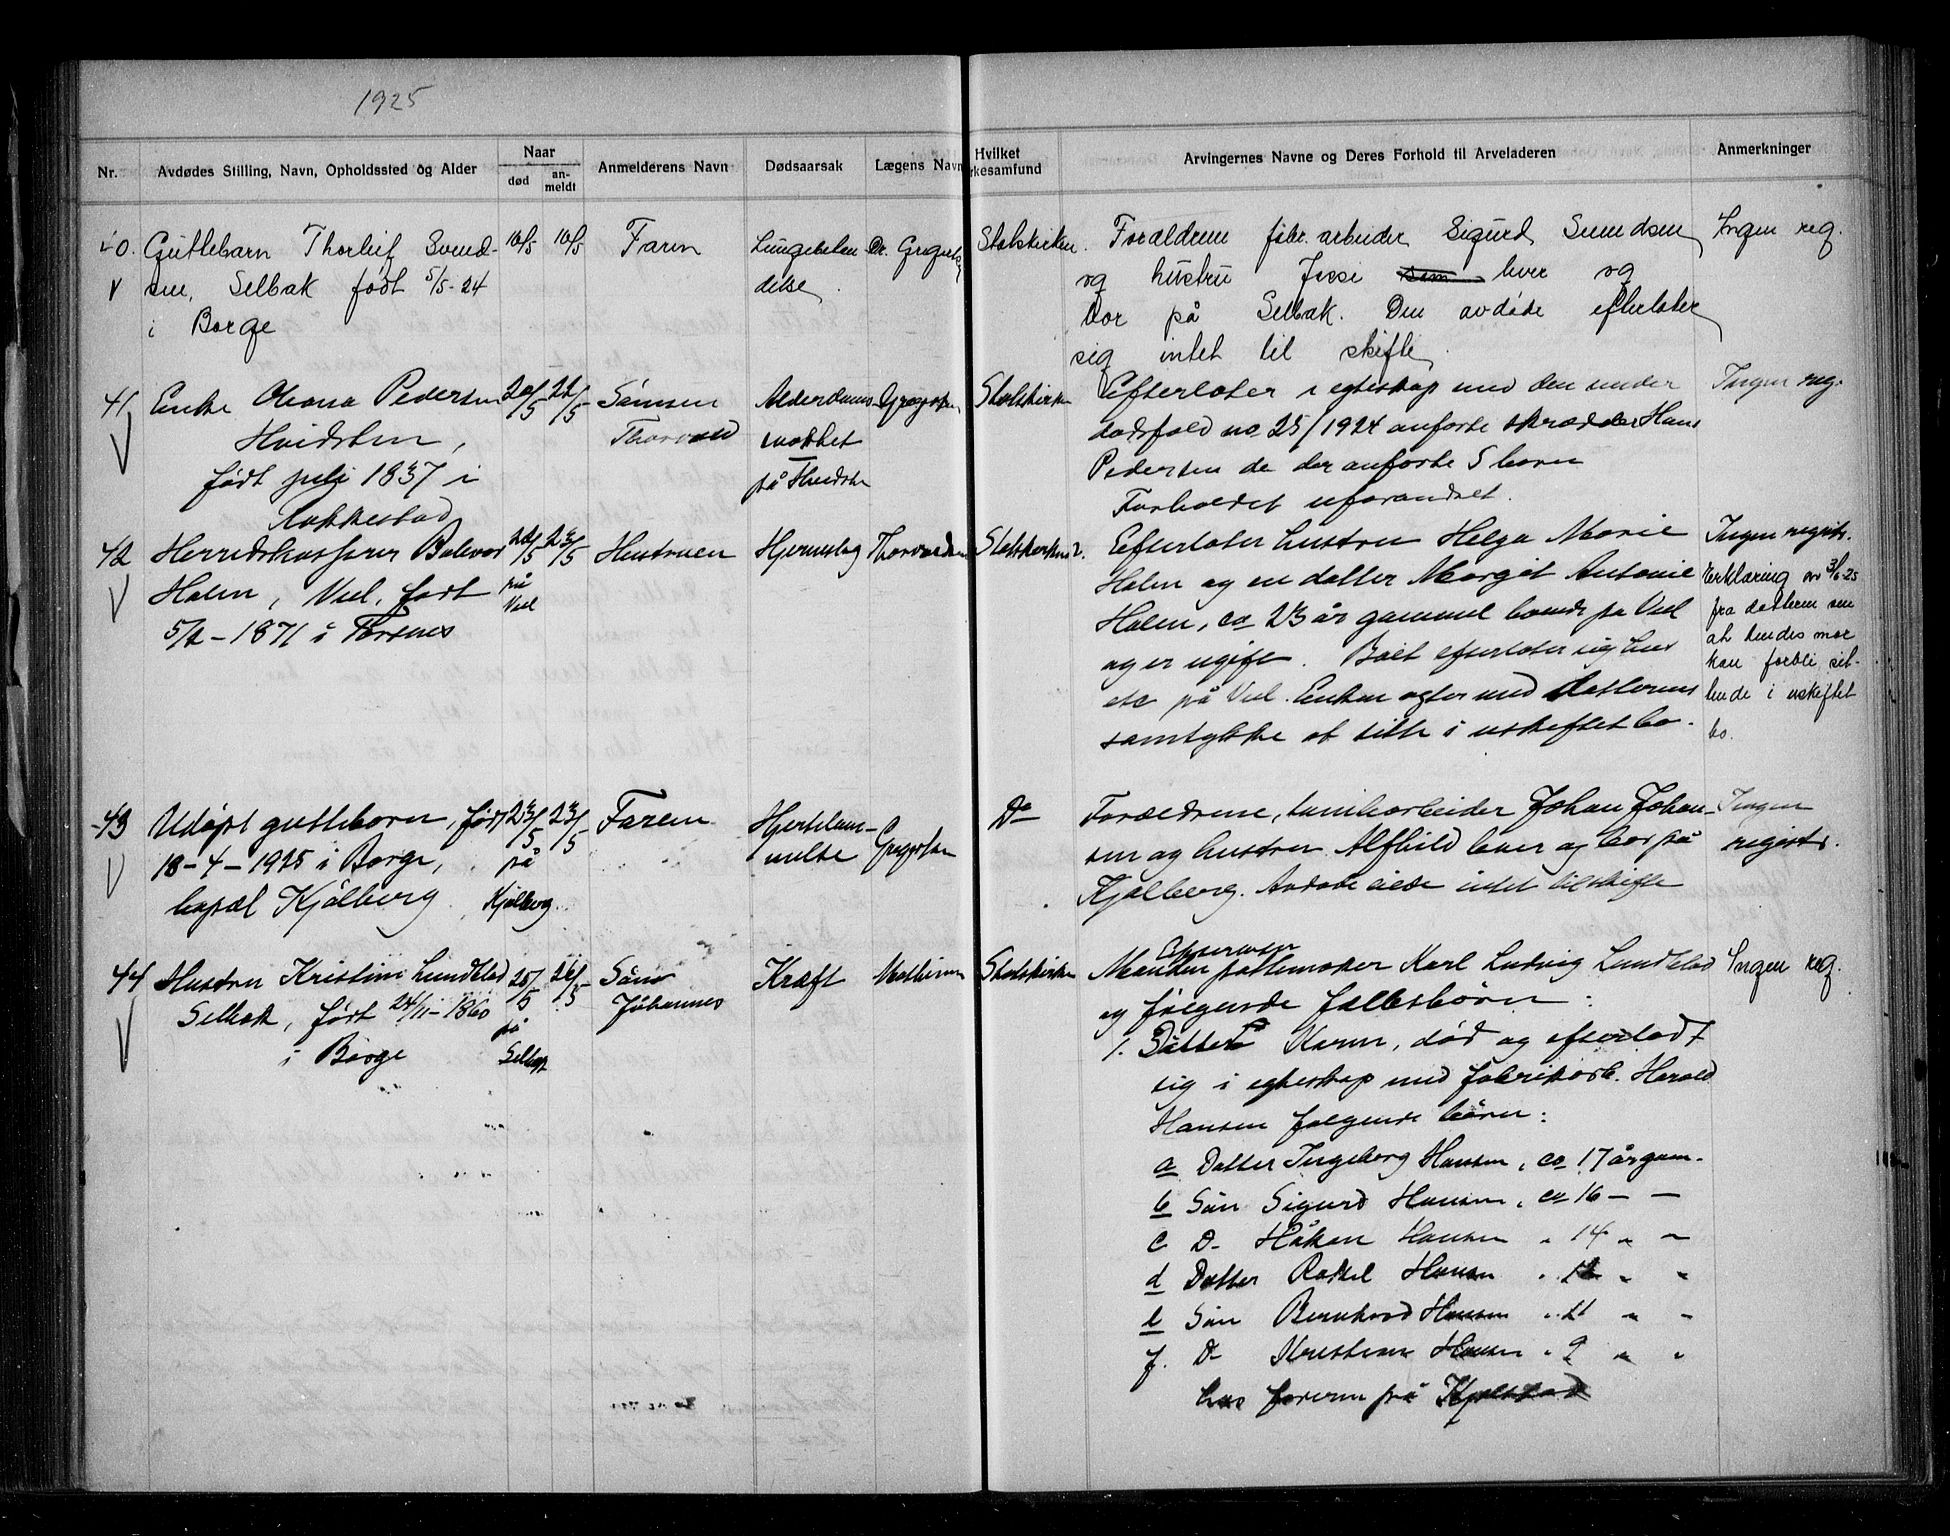 1925
Nr.
Avdødes Stilling, Navn, Opholdssted og Alder
Naar
død
an-
meldt
Anmelderens Navn
Dødsaarsak
Lægens Navn
Hvilket
rkesamfund
Arvingernes Navne og Deres Forhold til Arveladeren
Anmerkninger
40.
Guttebarn Thorleif Svend-
sen, Selbak født 5/5-24
i Borge
10/5
10/5
Faren
Lungebeten
delse
Dr. Gregusen
Statskirken
Forældrene fabr. arbeider Sigurd Svendsen
og hustru Jessi lever og
bor på Selbak. Den avdøde efterlater
sig intet til skifte.
Ingen reg.
41
Enke Oleana Pedersen
Hvidsten,
født juli 1837 i
Rakkestad
20/5
22/5
Sønnen
Thorvald
Alderdoms
svakhet
på Hvidsten
Gregusen
Statskirken
Efterlater i egteskap med den under
dødsfald no 25/1924 anførte skrædder Hans
Pedersen de der anførte 5 barn
Forholdet uforandret.
Ingen reg.
42
Herredskasserer
Holm, Viel, født
5/2-1871 i Torsnes
22/5
på
Viel
23/5
Hustruen
Hjerneslag
Thorvaldsen
Statskirken
Efterlater hustru Helga Marie
Holm og en datter Margit Antonie
Holm, ca 23 år gammel boende på Viel
og er ugift. Boet efterlater sig hus
etc på Viel. Enken agter med datterens
samtykke at sitte i uskiftet bo.
Ingen registr.
Erklæring av 3/6-25
fra datteren om
at hendes mor
kan forbli sit-
tende i uskiftet
bo.
43
Udøpt guttebarn, født
18-4-1925 i Borge,
bopæl Kjølberg
23/5
på
Kjølberg
23/5
Faren
Hjertelam-
melse
Gregusen
Do
Forældrene, fabrikarbeider Johan Johan-
sen og hustru Alfhild lever og bor på
Kjølberg. Avdøde eiede intet til skifte
Ingen
registr.
44
Hustru Kristine Lundblad
Selbak, født 24/11-1860
i Borge
25/5
på
Selbak
26/5
Sønn
Johannes
Kræft
Mathiesen
Statskirken
Manden pottemaker Karl Ludvig Lundblad
og følgende fællesbørn:
1. Datter Karen, død og efterlodt
sig i egteskap med fabrikarb. Harald
Hansen følgende børn:
a Datter Ingeborg Hansen, ca 17 år gam.
b Søn Sigurd Hansen, ca 16 — —
c D- Håkon Hansen " 14 " —
d Datter Rakel Hansen " 12 " "
e Søn Bernhard Hansen " 11 " "
f. D- Kristian Hansen " 9 " "
hos faren på
Ingen reg.